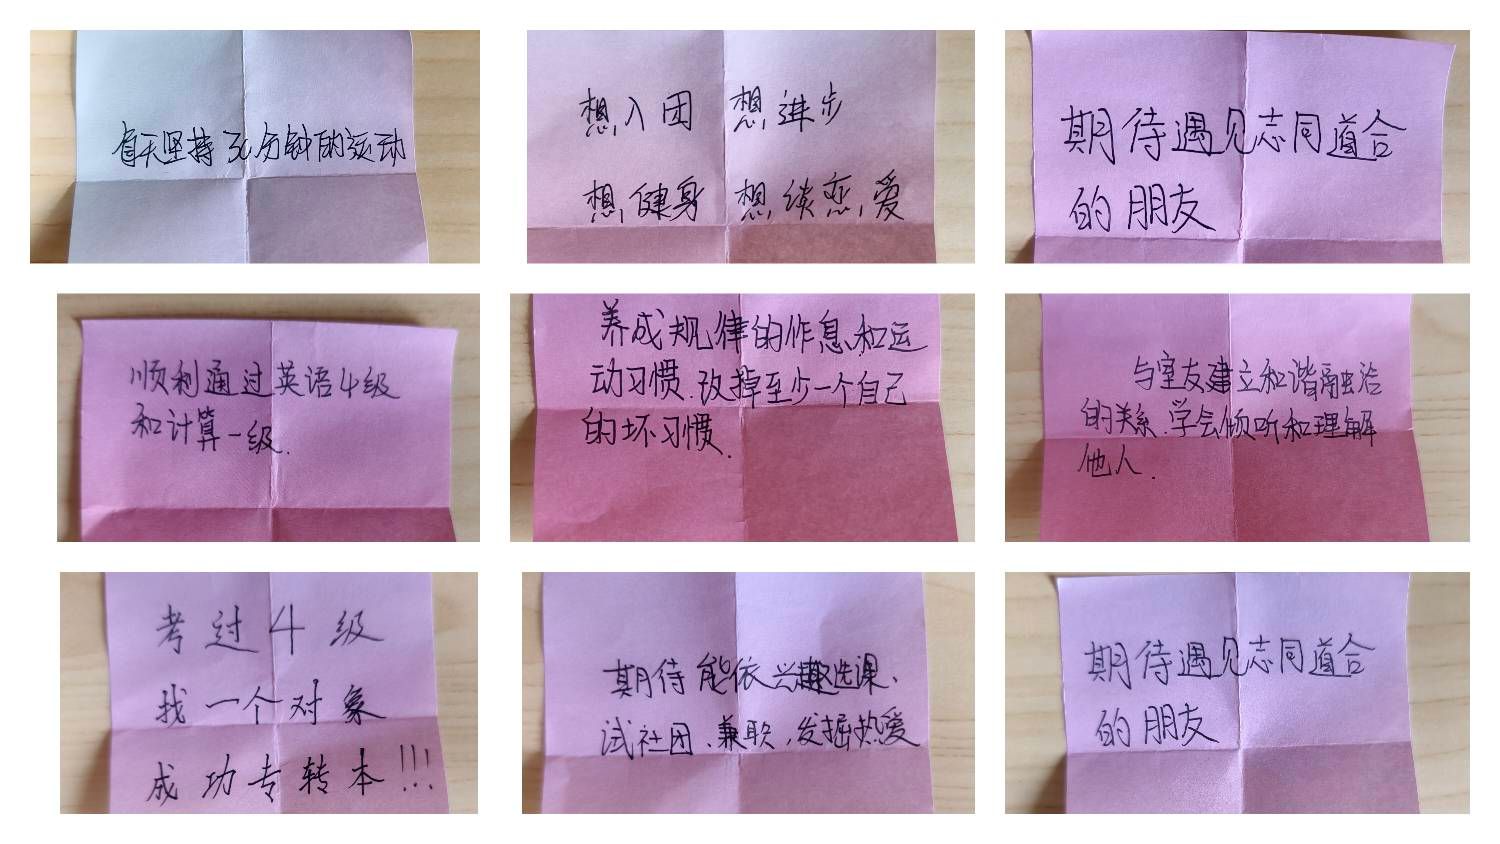 每天坚持30分钟的运动
想入团 想进步
想健身 想谈恋爱
期待遇见志同道合
的朋友
顺利通过英语4级
和计算一级.
养成规律的作息和运
动习惯.改掉至少一个自己
的坏习惯.
与室友建立和谐融洽
的关系.学会倾听和理解
他人.
考过4级
找一个对象
成功专转本!!!
期待能依兴趣选课、
试社团、兼职,发掘热爱
期待遇见志同道合
的朋友